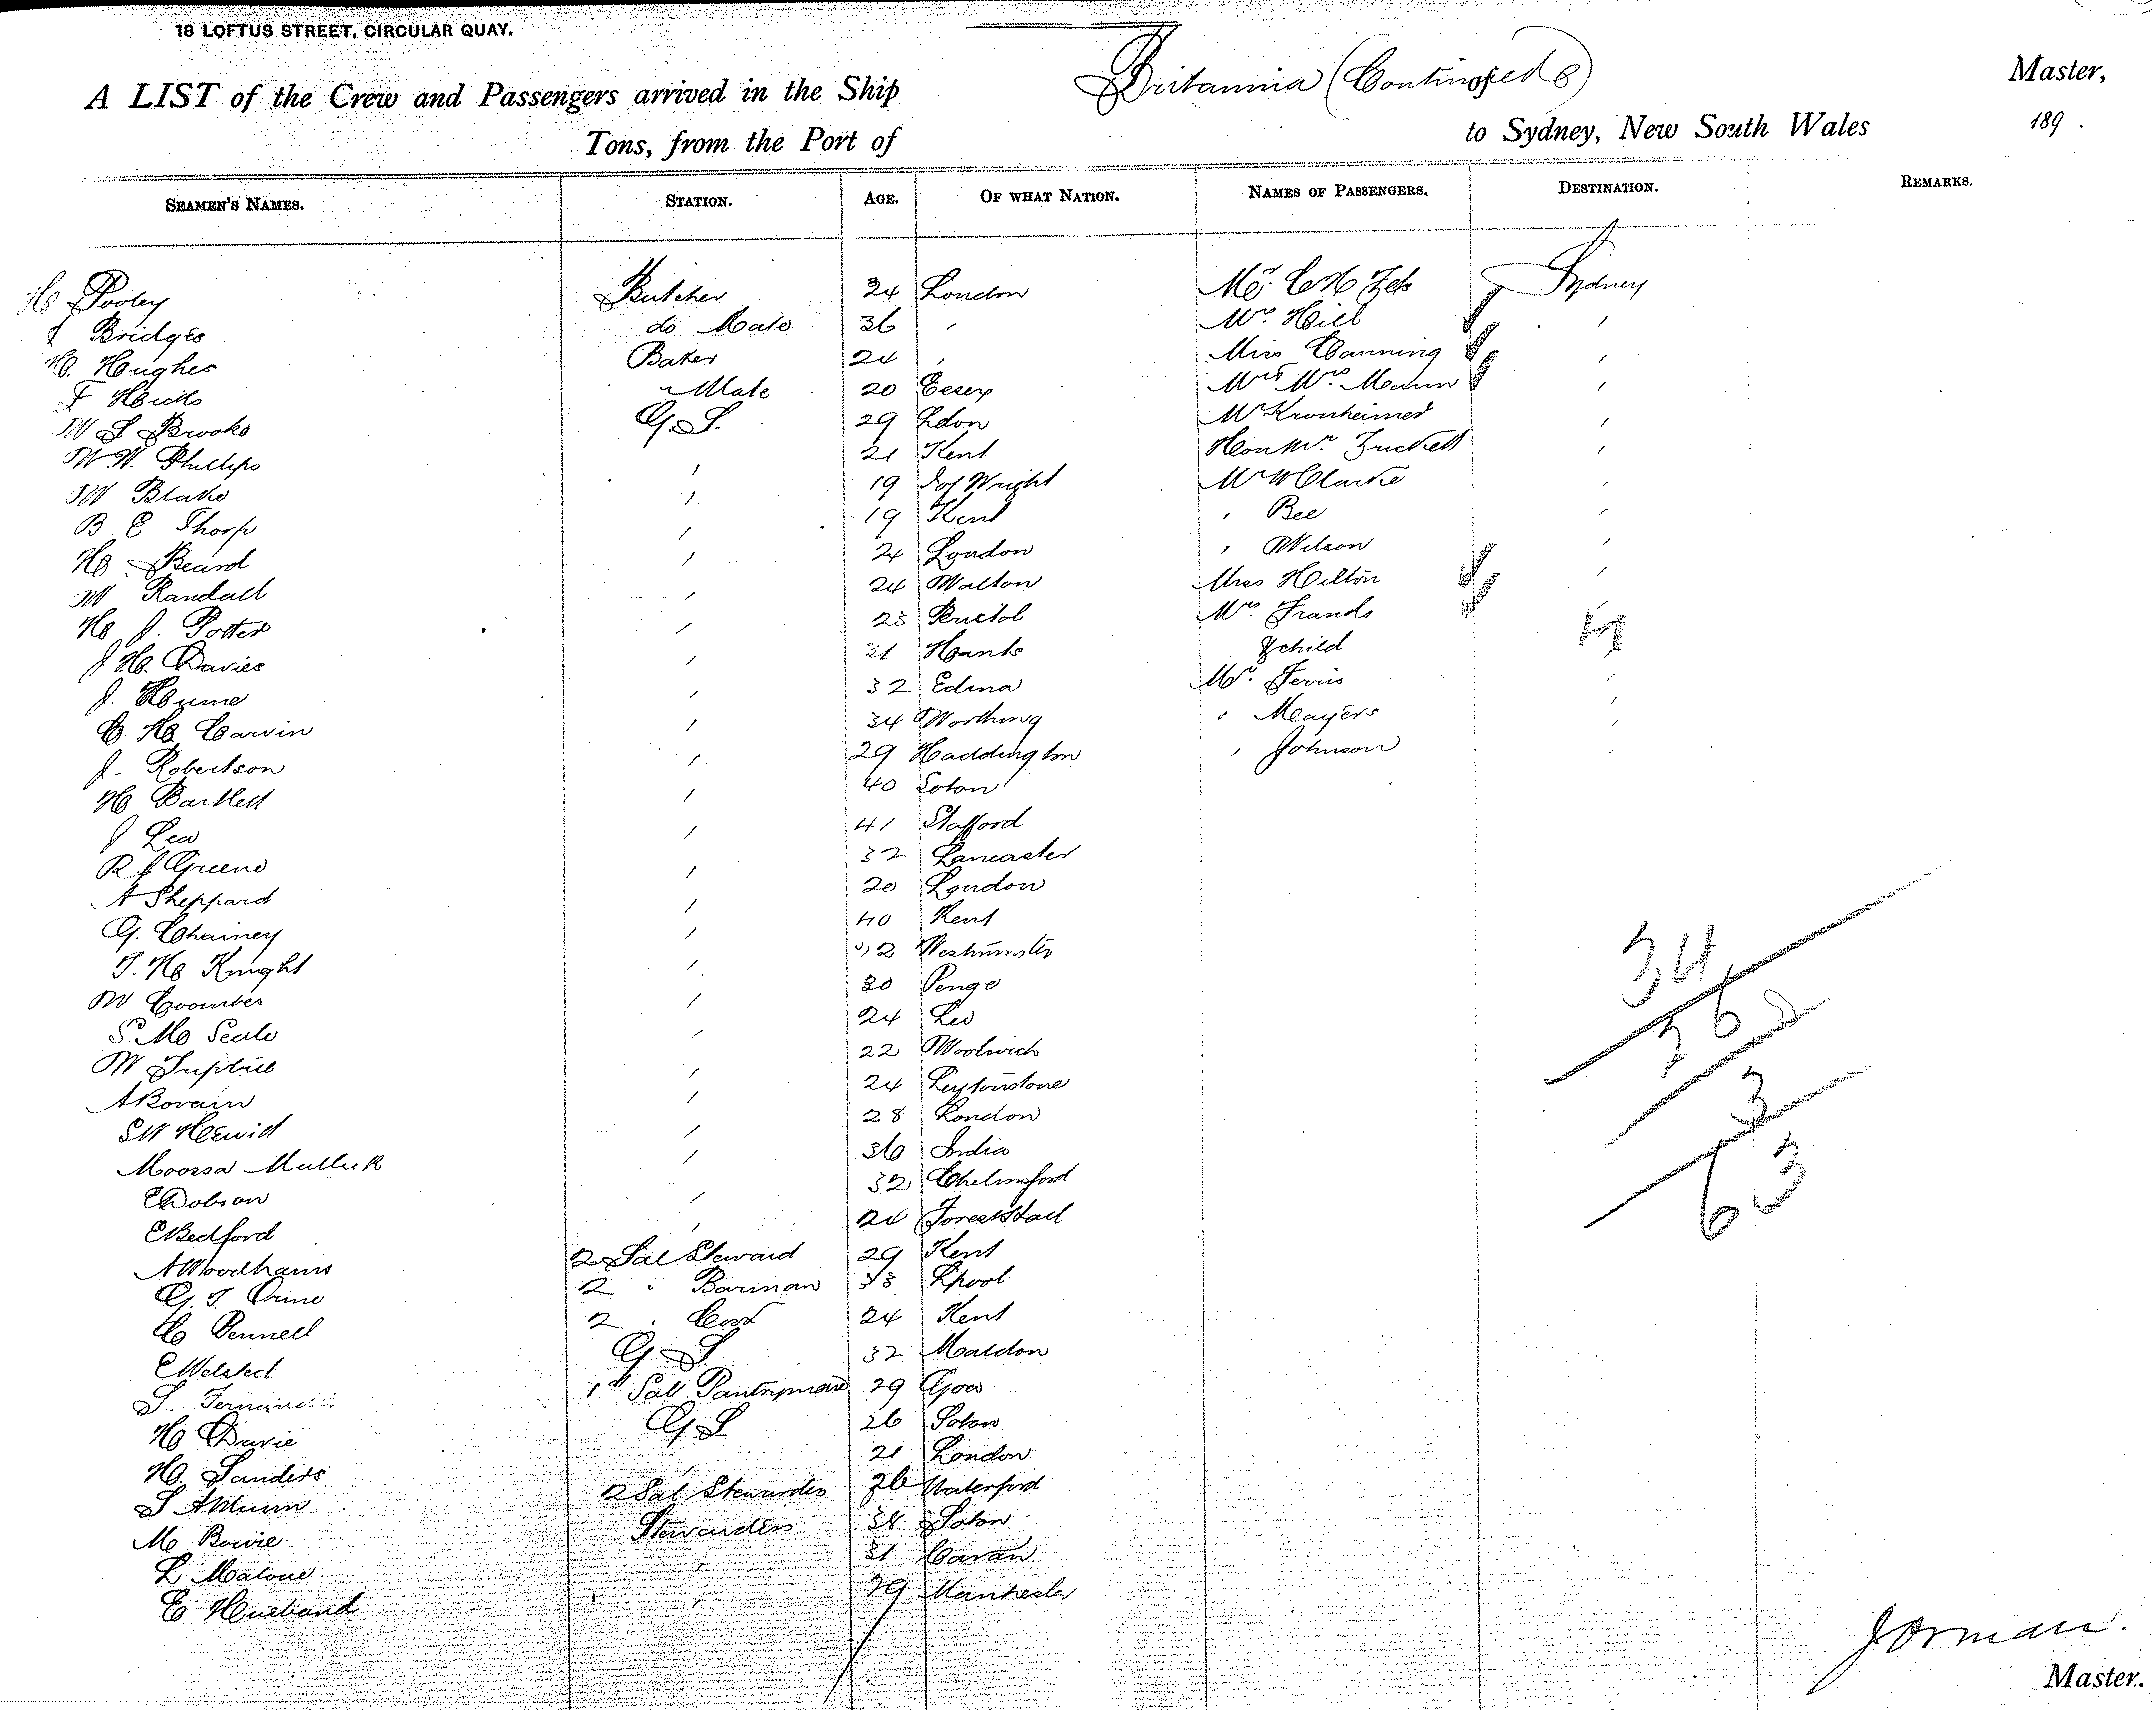 18 LOFTUS STREET, CIRCULAR QUAY.
A LIST of the Crew and Passengers arrived in the Ship Britannia (Continued) Master,
Tons, from the Port of to Sydney, New South Wales 189 .
SEAMEN'S NAMES. STATION. AGE. OF WHAT NATION. NAMES OF PASSENGERS. DESTINATION. REMARKS.
H Pooley Butcher 24 London Mr C H Sydney
J Bridges do Mate 36 " Mrs Hill "
H. Hughes Baker 24 " Miss Canning "
F Hicks " Mate 20 Essex Mr & Mrs Mann "
W S Brooks G. S. 29 Ldon Mr Kronheimer "
W W. Phillips " 21 Kent Hon Mr. "
W Blake " 19 I of Wright Mr W Clarke "
B E Thorp " 19 Kent " Bee "
H Beard " 24 London " Wilson "
W Randall " 24 Walton Miss Hilton "
H J. Potter " 25 Bristol Mrs
J H. Davies " 21 Hants & child "
J. Hume " 32 Edina Mr. "
C. H. Carvin " 34 Worthing " Meayers "
J. Robertson " 29 Haddington " Johnson
H Bartlett " 40 Soton
J Lea " 41 Stafford
R J Greene " 32 Lancaster
A Sheppard " 20 London
G. Chainey " 40 Kent
T. H. Knight " 32 Westminster
W Coomber " 30 Penge
S. M. " 24 Lee
W " 22 Woolwich
A Borain " 24 Leytonstone
S W " 28 London
Moossa Mullick " 36 India
E Dobson " 32 Chelmsford
C Bedford " 24 Forest
A Woodhams 2 Sal Steward 29 Kent
G. T. 2 " Barman 33 Lpool
C. Pennell 2 " Cook 24 Kent
E Welsted G S 32 Maldon
S. 1st Sal Pantryman 29 Goa
H Davie G S 26 Soton
H. Sanders " 21 London
S A Munn 2 Sal Stewardess 26 Waterford
M Bowie Stewardess 38 Soton
L Malone " 31 Cavan
E Husband " 29
34
362
3
63
Master.